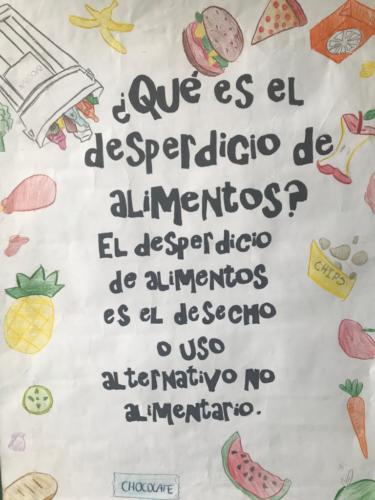 ¿QUÉ ES EL
DESPERDICIO DE
ALIMENTOS?
EL DESPERDICIO
DE ALIMENTOS
ES EL DESECHO
O USO
ALTERNATIVO NO
ALIMENTARIO.
CHIPS
CHOCOLATE